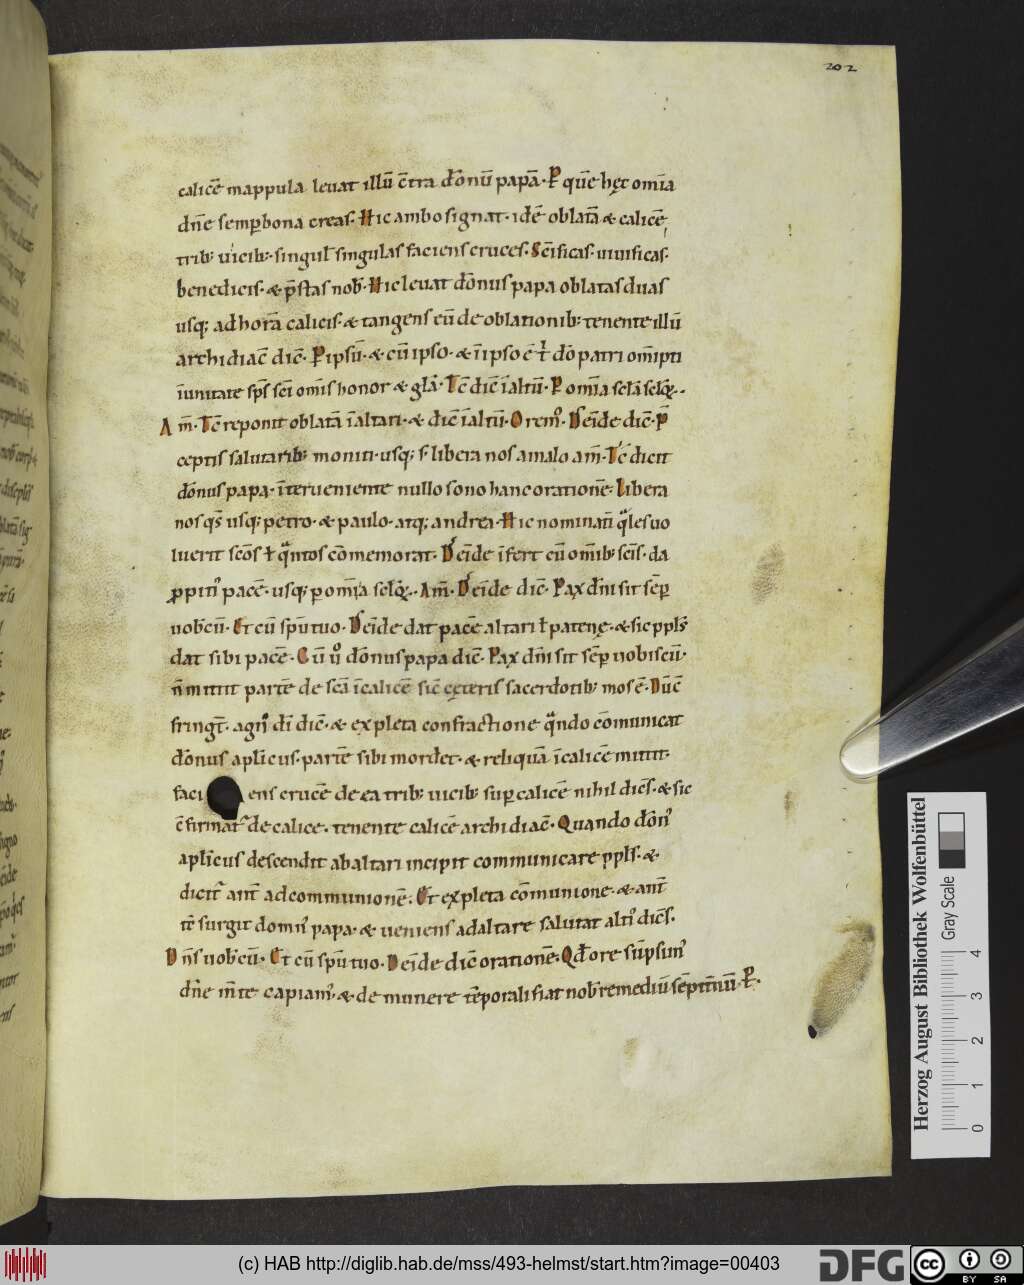 202
calicē mappula leuat illū c̄tra dōnū papā. P quē hęc om̄ia
dn̄e semp̱ bona creas. Hic ambo signat. idē oblatā & calicē,
trib; uicib;. singul̄ singulas faciens cruces. Sc̄ificas. uiuificas.
benedicis. & p̄stas nob̄. Hic leuat dōnus papa oblatas duas
usq; ad horā calicis. & tangens eū de oblationib; tenente illū
archidiac̄ dic̄. P ipsū. & cū ipso. & ī ipso ē t̄ dō patri om̄ipti
ī unitate sp̄s sc̄i om̄is honor & glā. Tc̄ dic̄ ī altū. P om̄ia sc̄la sclǫ..
Am̄. Tc̄ reponit oblatā ī altari. & dic̄ ī altū. Orem⁹. Deīde dic̄. P̄
ceptis salutarib; moniti. usq; s; libera nos a malo am̄. Tc̄ dicit
dōnus papa. īterueniente nullo sono hanc orationē. Libera
nos qs̄ usq; petro. & paulo. atq; andrea. Hic nominat̄ qͣles uo
luerit sc̄os t̄ qͣntos cōmemorat. Deīde īfert cū om̄ib; sc̄is. da
p̱pitī pacē. usq; p̱ om̄ia sclǫ.. Am̄. Deīde dic̄. Pax dn̄i sit sēp̱
uob̄cū. Et cū spū tuo. Deīde dat pacē altari t̄ patenę. & sic ppls̄
dat sibi pacē. Cū ūo dōnus papa dic̄. Pax dn̄i sit sēp̱ uobiscū.
n̄ mittit partē de sc̄a ī calicē sic̄ cęteris sacerdotib; mos ē. Dūc̄
fringt̄. agn⁹ dī dic̄. & expleta confractione qͣndo cōmunicat
dōnus aplicus. partē sibi mordet. & reliquā ī calicē mittit.
faciens crucē de ea trib; uicib; sup̱ calicē nihil dicēs. & sic
c̄firmat̄ de calice. tenente calicē archidiac̄. Quando dōn⁹
aplicus descendit ab altari incipit communicare ppls̄. &
dicit̄ ant̄ ad communionē. Et expleta cōmunione. & ant̄
tē surgit domn⁹ papa. & ueniens ad altare salutat alt⁹ dicēs.
Dn̄s uob̄cū. Et cū spū tuo. Deīde dic̄ orationē. Qd̄ ore sūpsim⁹
dn̄e m̄te capiam⁹. & de munere tēporali fiat nob̄ remediū sēpitnū. P̱.
Herzog August Bibliothek Wolfenbüttel
Gray Scale
0 1 2 3 4
(c) HAB http://diglib.hab.de/mss/493-helmst/start.htm?image=00403
DFG
cc BY SA